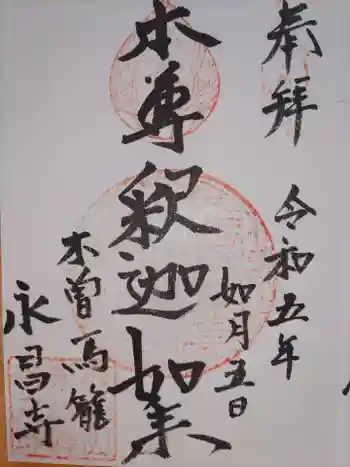 奉拝
令和五年
如月五日
本尊釈迦如来
木曽馬籠
永昌寺